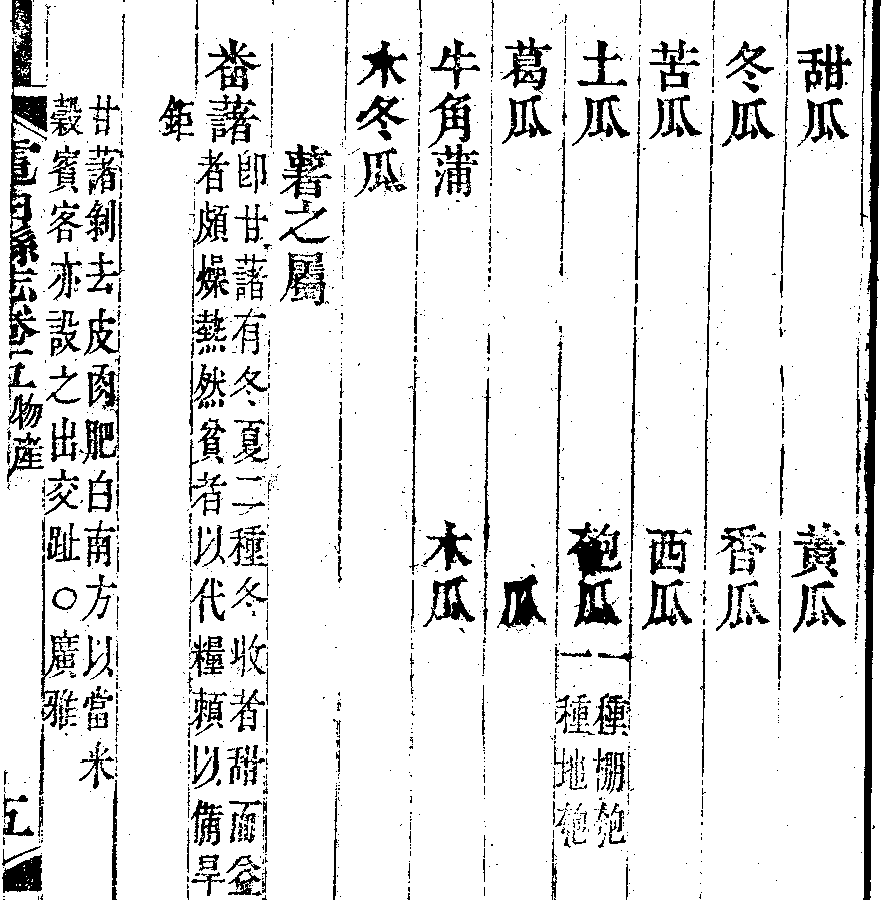 甜瓜 黃瓜
冬瓜 香瓜
苦瓜 西瓜
土瓜 匏瓜 一種棚匏 一種地匏
葛瓜 瓜
牛角蒲 木瓜
木冬瓜
薯之屬
番藷 卽甘藷有冬夏二種冬收者甜而益
者頗燥熱然貧者以代糧頼以備旱
鉅
甘藷剝去皮肉肥白南方以當米
穀賓客亦設之出交趾○廣雅
電白縣志卷五 物產 五